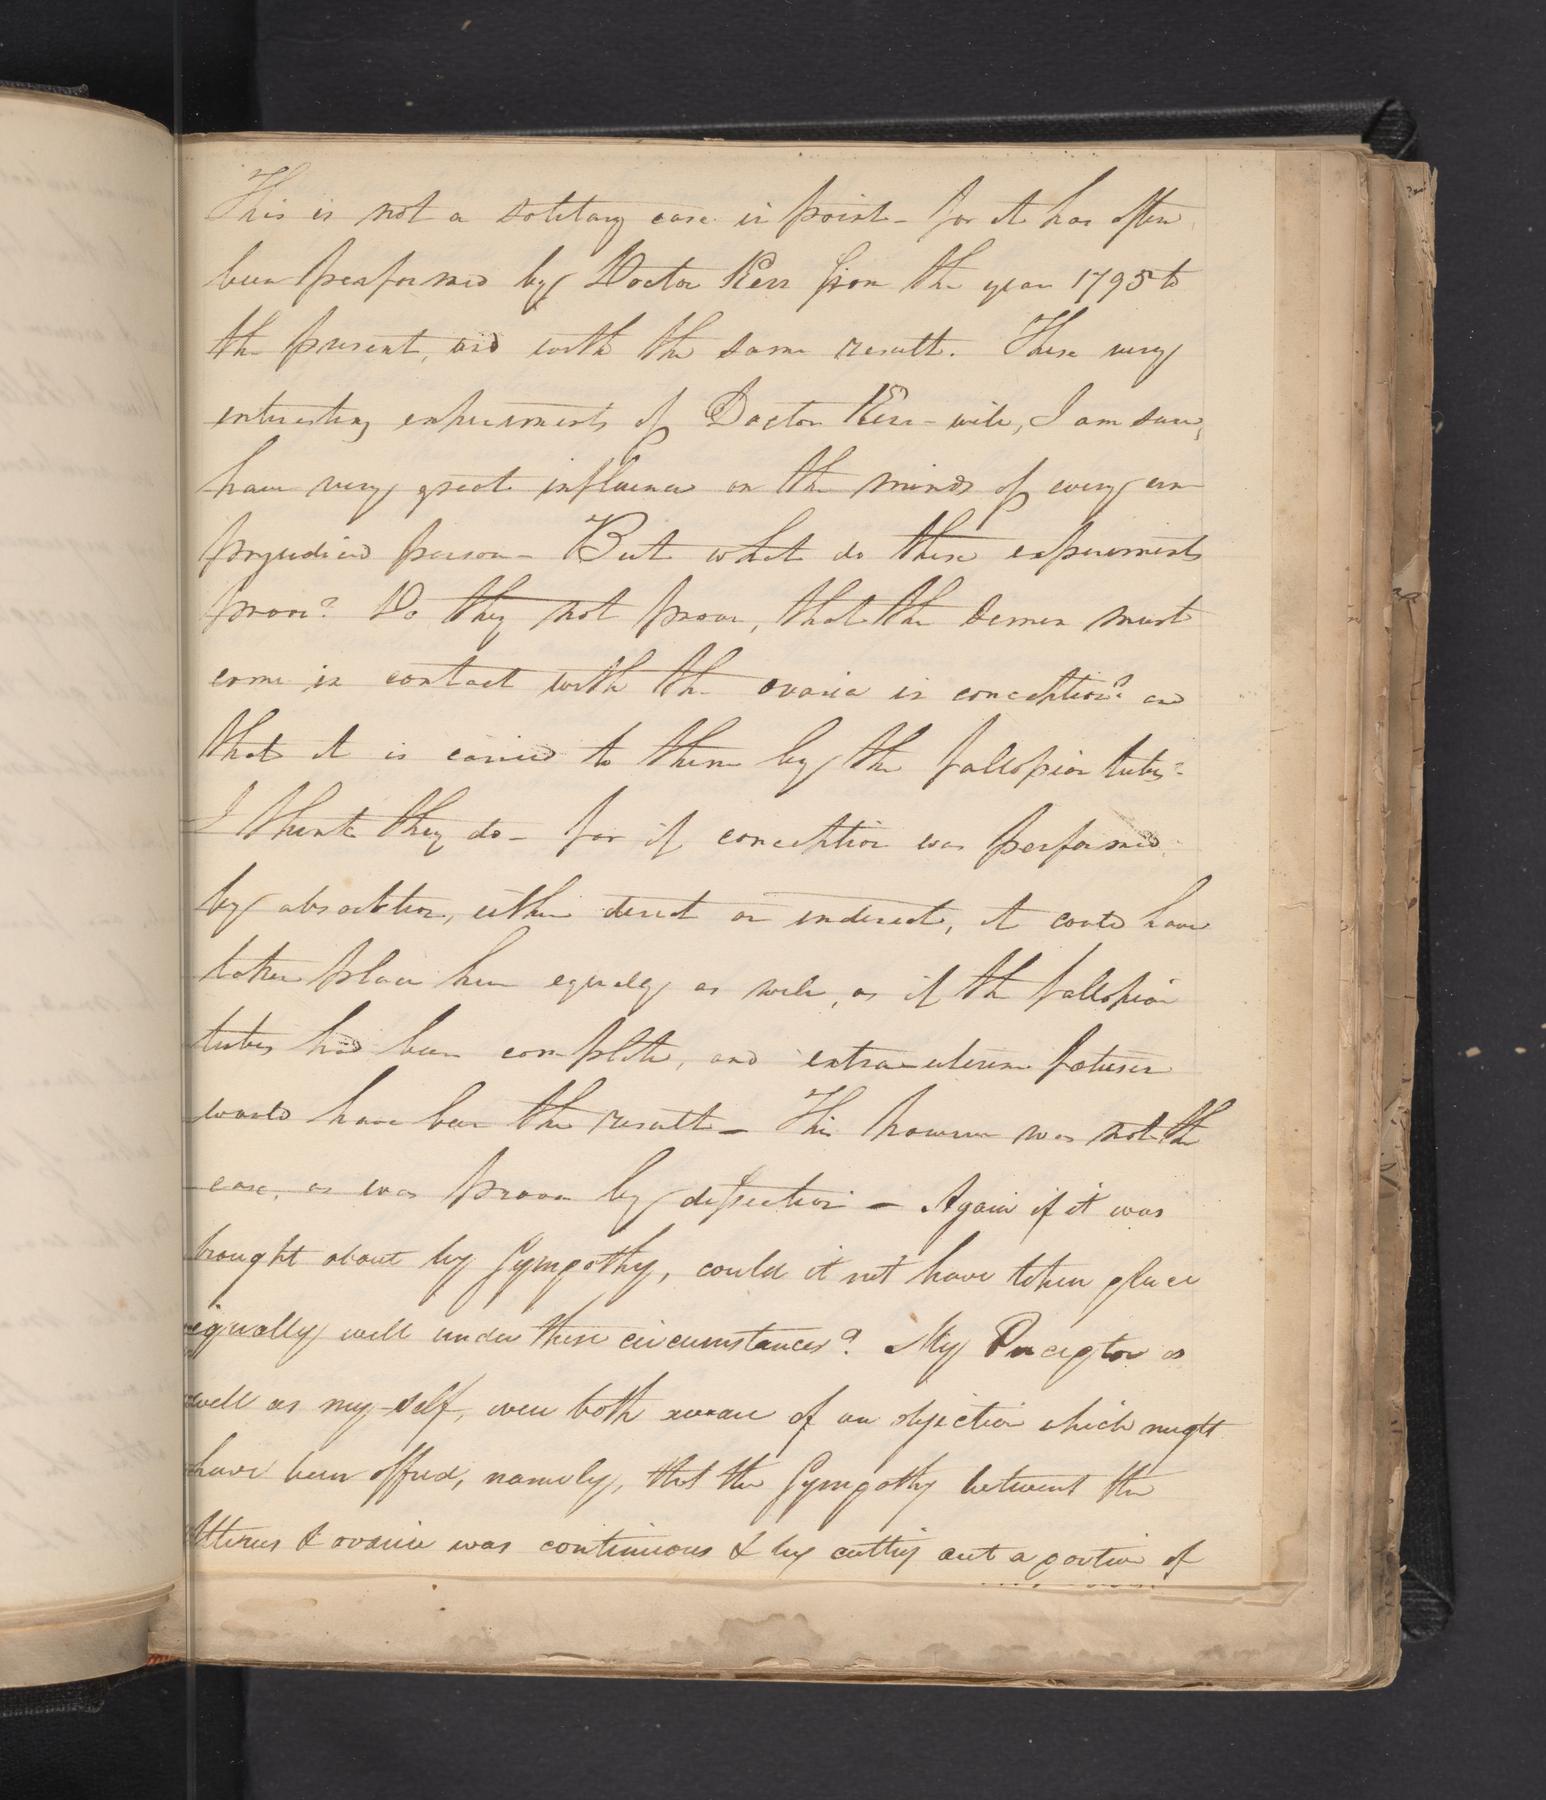 This is not a solitary case in point - for it has often
been performed by Doctor Kerr from the year 1795 to
the present, and with the same result. These very
interesting experiments of Doctor Kerr - will, I am sure,
have very great influence on the minds of every un-
prejudiced person - But what do these experiments
prove? Do they not prove, that the semen must
come in contact with the ovaria in conception? and
that it is carried to them by the fallopian tubes?
I think they do - for if conception was performed
by absorbtion, either direct or indirect, it could have
taken place here equally as well, as if the fallopian
tubes had been complete, and extra-uterine fœtuses
would have been the result - This however was not the
case, as was proven by dissection - Again if it was
brought about by Sympathy, could it not have taken place
equally well under these circumstances? My Preceptor as
well as my-self, were both aware of an objection which might
have been offred, namely, that the Sympathy betwent the
Utterus & ovaria was continuous & by cutting out a portion of